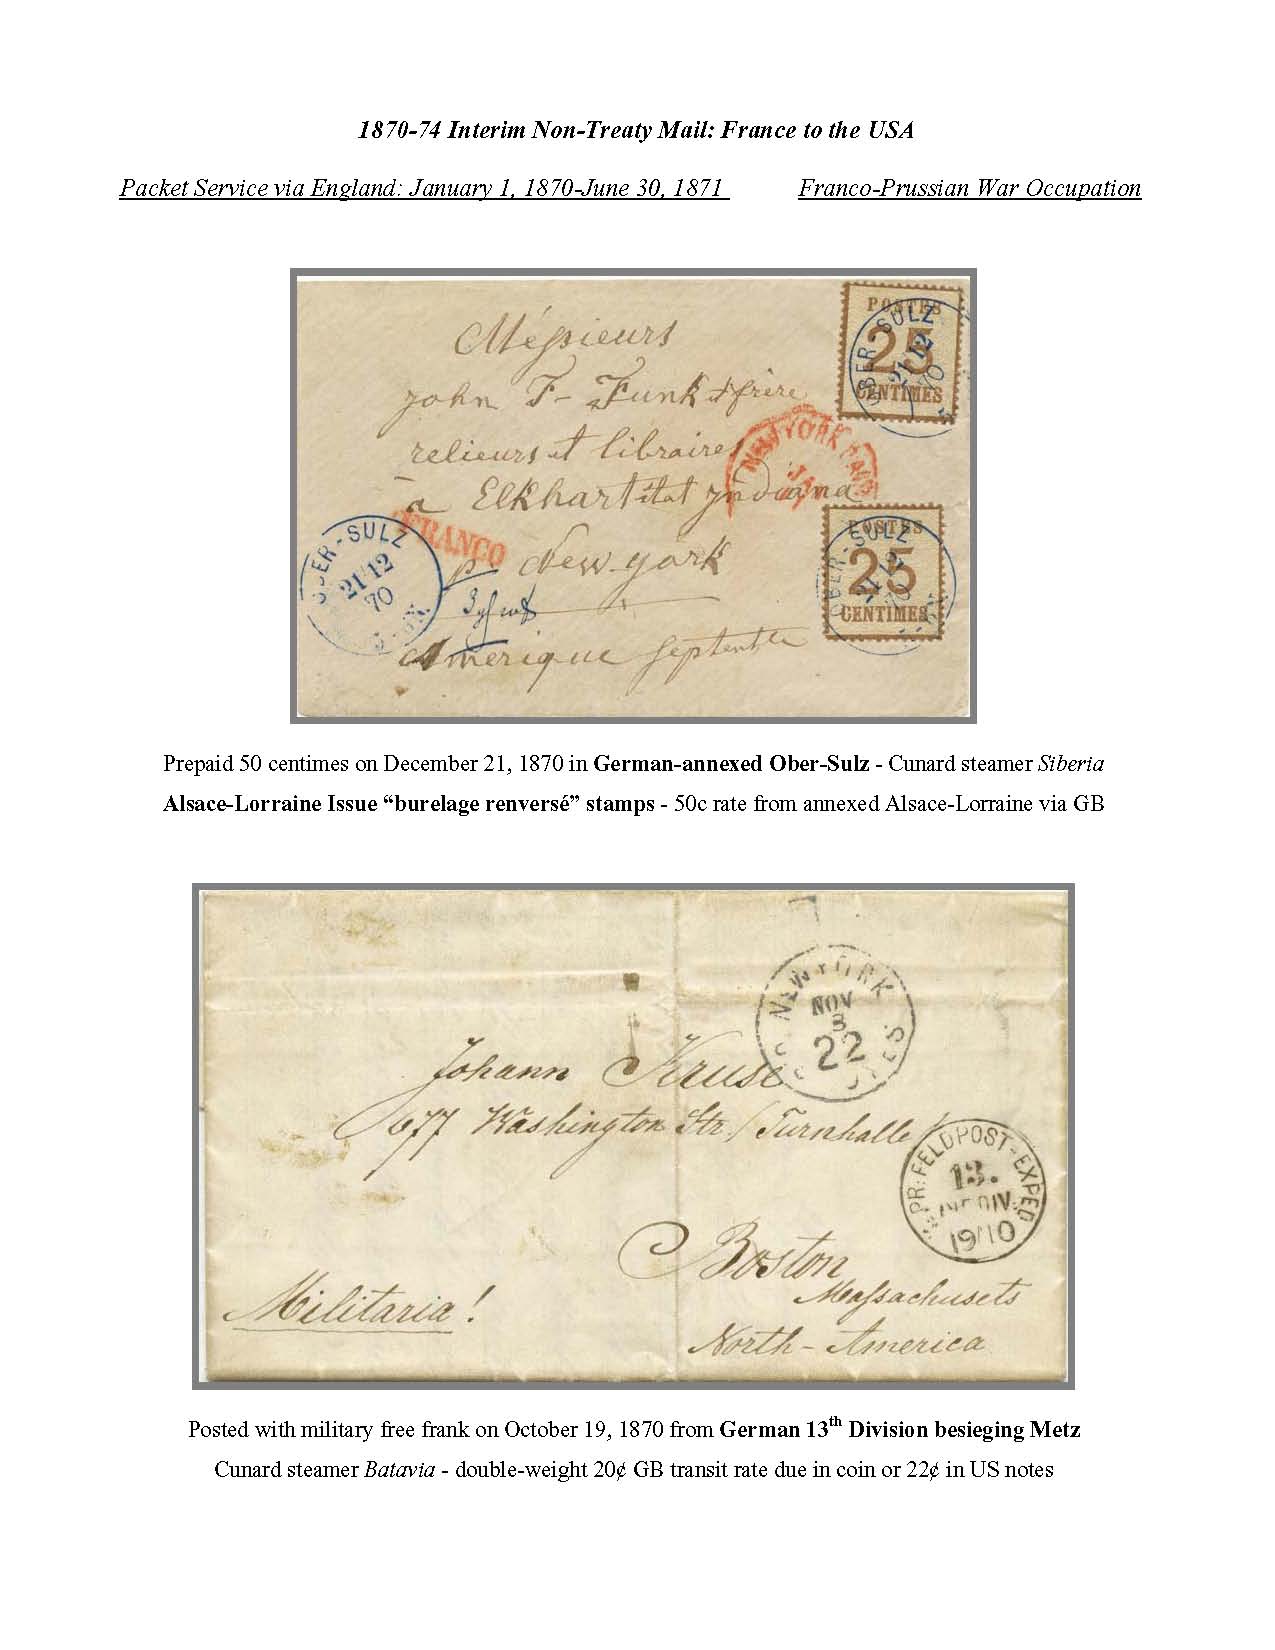 1870-74 Interim Non-Treaty Mail: France to the USA
Packet Service via England: January 1, 1870-June 30, 1871 Franco-Prussian War Occupation
POSTES
25
CENTIMES
OBER-SULZ
21/12
70
Méssieurs
John F. Funk & frère
relieurs et libraires
à Elkhart stat Indiana
p. New-york
Amerique septentle
NEW YORK PAID
JA
FRANCO
OBER-SULZ
21/12
70
POSTES
25
CENTIMES
OBER-SULZ
21/12
70
Prepaid 50 centimes on December 21, 1870 in German-annexed Ober-Sulz - Cunard steamer Siberia
Alsace-Lorraine Issue “burelage renversé” stamps - 50c rate from annexed Alsace-Lorraine via GB
NEW YORK
NOV
3
22
Johann Kruse
677 Washington Str. / Turnhalle /
K. PR. FELDPOST-EXPED.
13.
INF. DIV.
19/10
Boston
Massachusets
North-America
Militaria!
Posted with military free frank on October 19, 1870 from German 13th Division besieging Metz
Cunard steamer Batavia - double-weight 20¢ GB transit rate due in coin or 22¢ in US notes